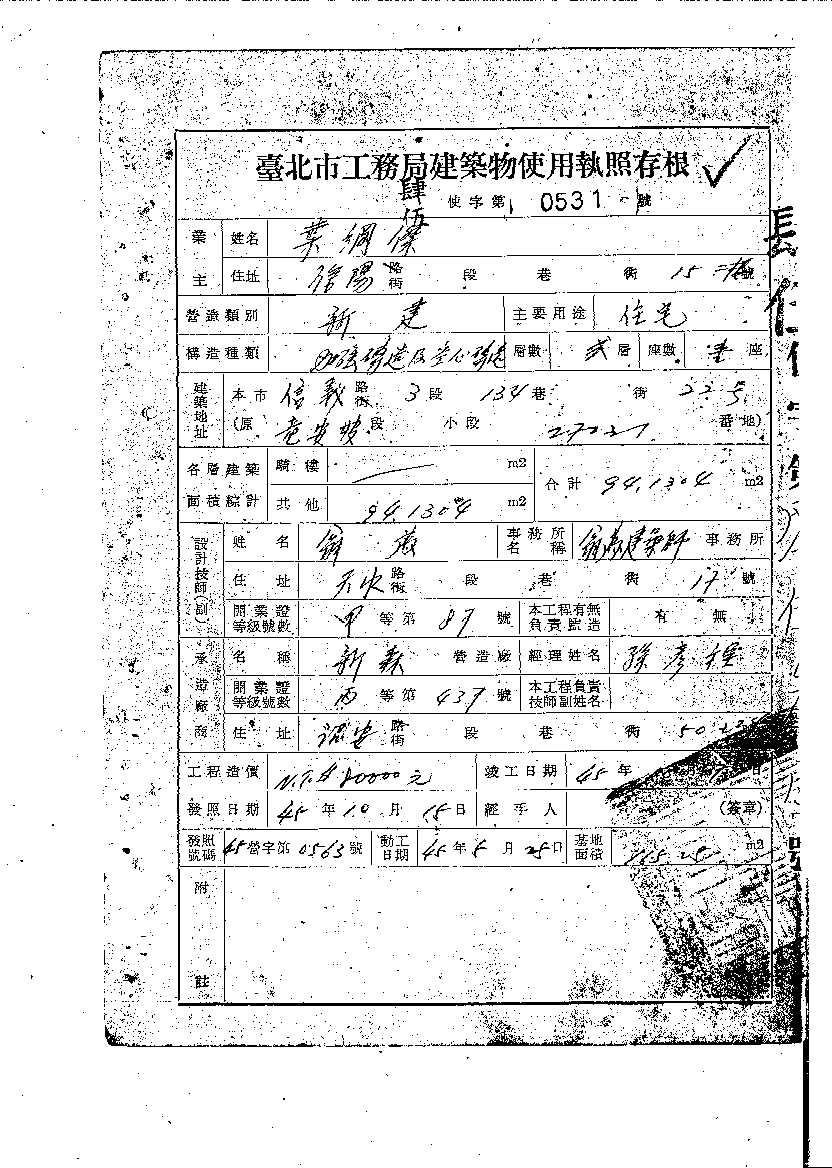 臺北市工務局建築物使用執照存根
肆伍使字第 0531 號
業主 姓名 葉綱
住址 信陽 路街 段 巷 街 15 號
營造類別 新建 主要用途 住宅
構造種類 加強磚造及空心磚造 層數 弍層 座數 壹座
建築地址 本市 信義路街 3段 134巷 街 22 5
(原 龍安坡段 小段 27027 番地)
各層建築面積綜計 騎樓 — m2 合計 94.1304 m2
其他 94.1304 m2
設計技師(副) 姓名 事務所名稱 建築師事務所
住址 天水路街 段 巷 街 17號
開業證等級號數 甲等第 87 號 本工程有無負責監造 有 無
承造廠商 名稱 新森 營造廠 經理姓名 孫彥
開業證等級號數 丙等第 437 號 本工程負責技師副姓名
住址 詔安路街 段 巷 街 50
工程造價 N.T.$ 80000元 竣工日期 45年
發照日期 45年10月15日 經手人 (簽章)
發照號碼 45營字第0563號 動工日期 45年5月25日 基地面積 m2
附註